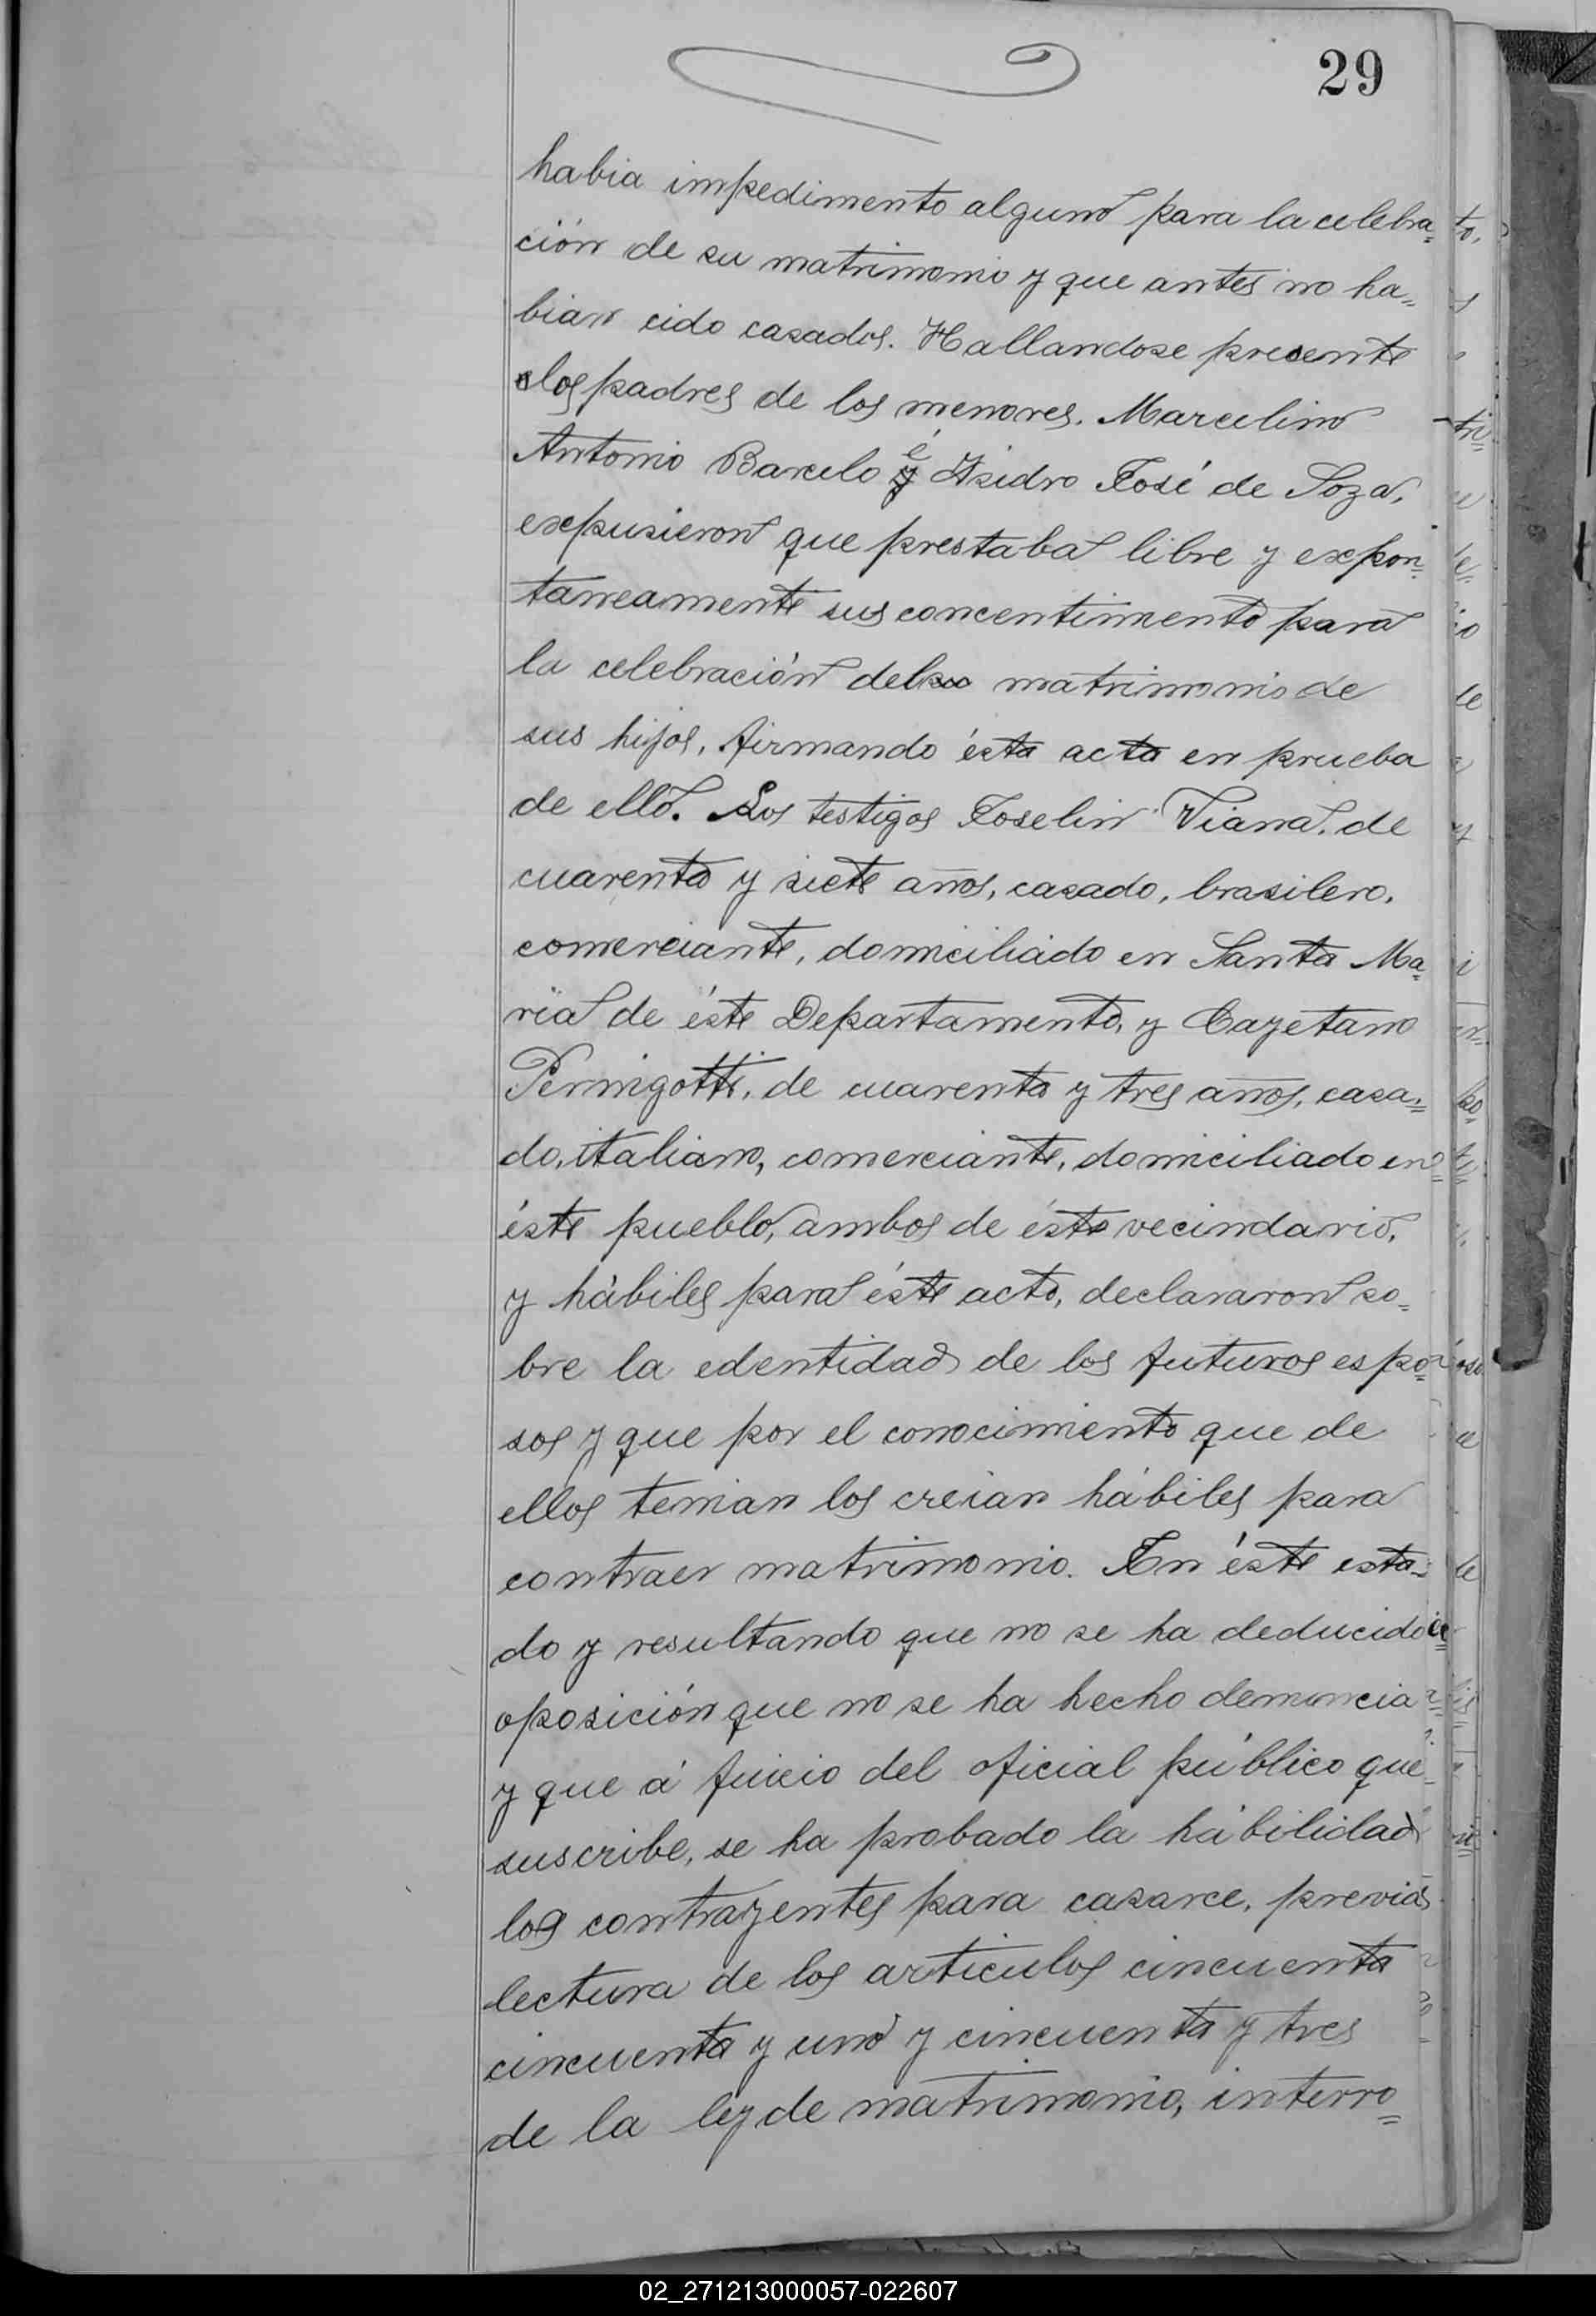 29
habia impedimento alguno para la celebra=
ción de su matrimonio y que antes no ha=
bian cido casados. Hallandose precente
los padres de los menores. Marcelino
Antonio Barcelo é Isidro José de Soza,
expusieron que prestaba libre y expon=
taneamente sus concentimento para
la celebración del matrimonio de
sus hijos, firmando ésta acta en prueba
de ello. Los testigos Joselin Viana. de
cuarenta y siete años, casado, brasilero,
comerciante, domiciliado en Santa Ma=
ria de éste Departamento, y Cayetano
Pernigotti, de cuarenta y tres años, casa=
do, italiano, comerciante, domiciliado en
éste pueblo, ambos de éste vecindario,
y hábiles para éste acto, declararon so=
bre la edentidad de los futuros espo=
sos y que por el conocimiento que de
ellos tenian los creian hábiles para
contraer matrimonio. En éste esta=
do y resultando que no se ha deducido
oposición que no se ha hecho denuncia
y que á juicio del oficial público que
suscribe, se ha probado la hábilidad
los contrayentes para casarce, previa
lectura de los articulos cincuenta
cincuenta y uno y cincuenta y tres
de la ley de matrimonio, interro=
02_271213000057-022607